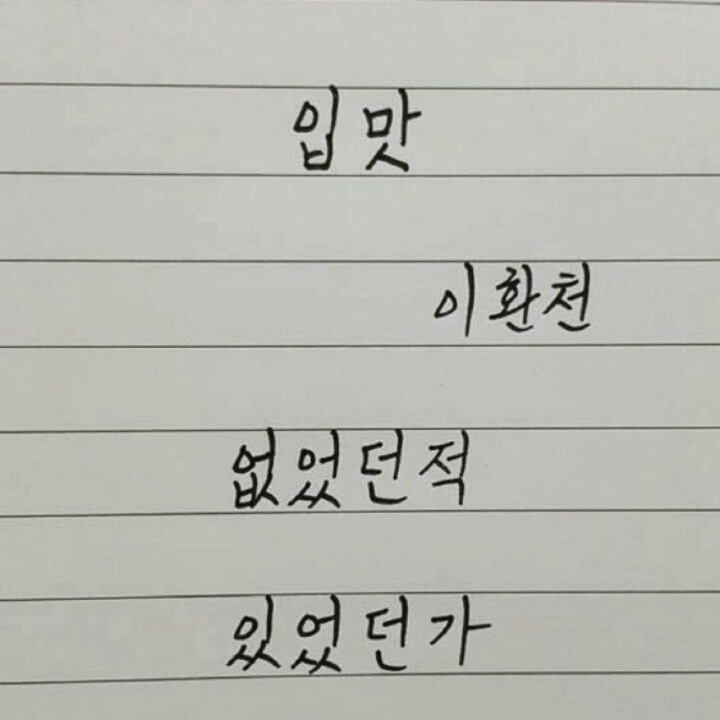 입맛
이환천
없었던적
있었던가